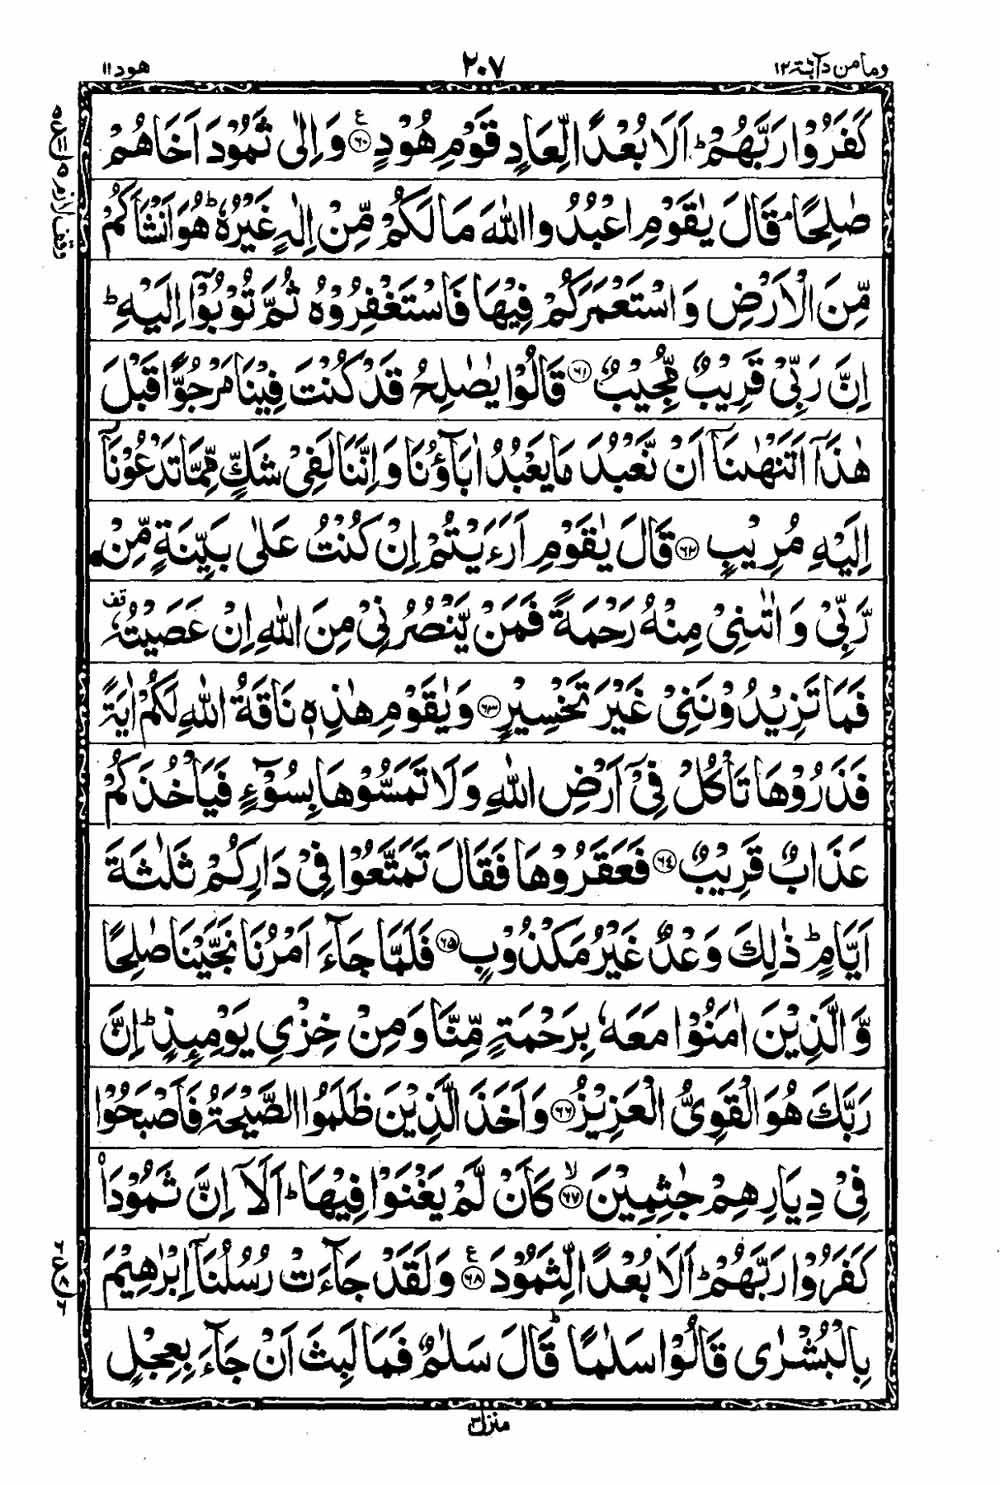 وما من دآبة ١٢
٢٠٧
هود ١١
كَفَرُوْا رَبَّهُمْ ؕ اَلَا بُعْدًا لِّعَادٍ قَوْمِ هُوْدٍ ﴿٦٠﴾ ع وَ اِلٰى ثَمُوْدَ اَخَاهُمْ
صٰلِحًا ۘ قَالَ يٰقَوْمِ اعْبُدُوا اللّٰهَ مَا لَكُمْ مِّنْ اِلٰهٍ غَيْرُهٗ ؕ هُوَ اَنْشَاَكُمْ
مِّنَ الْاَرْضِ وَ اسْتَعْمَرَكُمْ فِيْهَا فَاسْتَغْفِرُوْهُ ثُمَّ تُوْبُوْۤا اِلَيْهِ ؕ
اِنَّ رَبِّيْ قَرِيْبٌ مُّجِيْبٌ ﴿٦١﴾ قَالُوْا يٰصٰلِحُ قَدْ كُنْتَ فِيْنَا مَرْجُوًّا قَبْلَ
هٰذَاۤ اَتَنْهٰىنَاۤ اَنْ نَّعْبُدَ مَا يَعْبُدُ اٰبَآؤُنَا وَ اِنَّنَا لَفِيْ شَكٍّ مِّمَّا تَدْعُوْنَاۤ
اِلَيْهِ مُرِيْبٍ ﴿٦٢﴾ قَالَ يٰقَوْمِ اَرَءَيْتُمْ اِنْ كُنْتُ عَلٰى بَيِّنَةٍ مِّنْ
رَّبِّيْ وَ اٰتٰىنِيْ مِنْهُ رَحْمَةً فَمَنْ يَّنْصُرُنِيْ مِنَ اللّٰهِ اِنْ عَصَيْتُهٗ قف
فَمَا تَزِيْدُوْنَنِيْ غَيْرَ تَخْسِيْرٍ ﴿٦٣﴾ وَ يٰقَوْمِ هٰذِهٖ نَاقَةُ اللّٰهِ لَكُمْ اٰيَةً
فَذَرُوْهَا تَاْكُلْ فِيْۤ اَرْضِ اللّٰهِ وَ لَا تَمَسُّوْهَا بِسُوْٓءٍ فَيَاْخُذَكُمْ
عَذَابٌ قَرِيْبٌ ﴿٦٤﴾ فَعَقَرُوْهَا فَقَالَ تَمَتَّعُوْا فِيْ دَارِكُمْ ثَلٰثَةَ
اَيَّامٍ ؕ ذٰلِكَ وَعْدٌ غَيْرُ مَكْذُوْبٍ ﴿٦٥﴾ فَلَمَّا جَآءَ اَمْرُنَا نَجَّيْنَا صٰلِحًا
وَّ الَّذِيْنَ اٰمَنُوْا مَعَهٗ بِرَحْمَةٍ مِّنَّا وَ مِنْ خِزْيِ يَوْمِئِذٍ ؕ اِنَّ
رَبَّكَ هُوَ الْقَوِيُّ الْعَزِيْزُ ﴿٦٦﴾ وَ اَخَذَ الَّذِيْنَ ظَلَمُوا الصَّيْحَةُ فَاَصْبَحُوْا
فِيْ دِيَارِهِمْ جٰثِمِيْنَ ﴿٦٧﴾ ۙ كَاَنْ لَّمْ يَغْنَوْا فِيْهَا ؕ اَلَاۤ اِنَّ ثَمُوْدَا۠
كَفَرُوْا رَبَّهُمْ ؕ اَلَا بُعْدًا لِّثَمُوْدَ ﴿٦٨﴾ ع وَ لَقَدْ جَآءَتْ رُسُلُنَاۤ اِبْرٰهِيْمَ
بِالْبُشْرٰى قَالُوْا سَلٰمًا ؕ قَالَ سَلٰمٌ فَمَا لَبِثَ اَنْ جَآءَ بِعِجْلٍ
منزل ٣